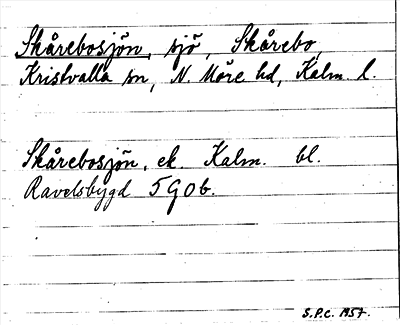 Skårebosjön, sjö, Skårebo,
Kristvalla sn, N. Möre hd, Kalm. l.
Skårebosjön, ek. Kalm. bl.
Ravelsbygd 5G0b.
S.P.C. 1957.